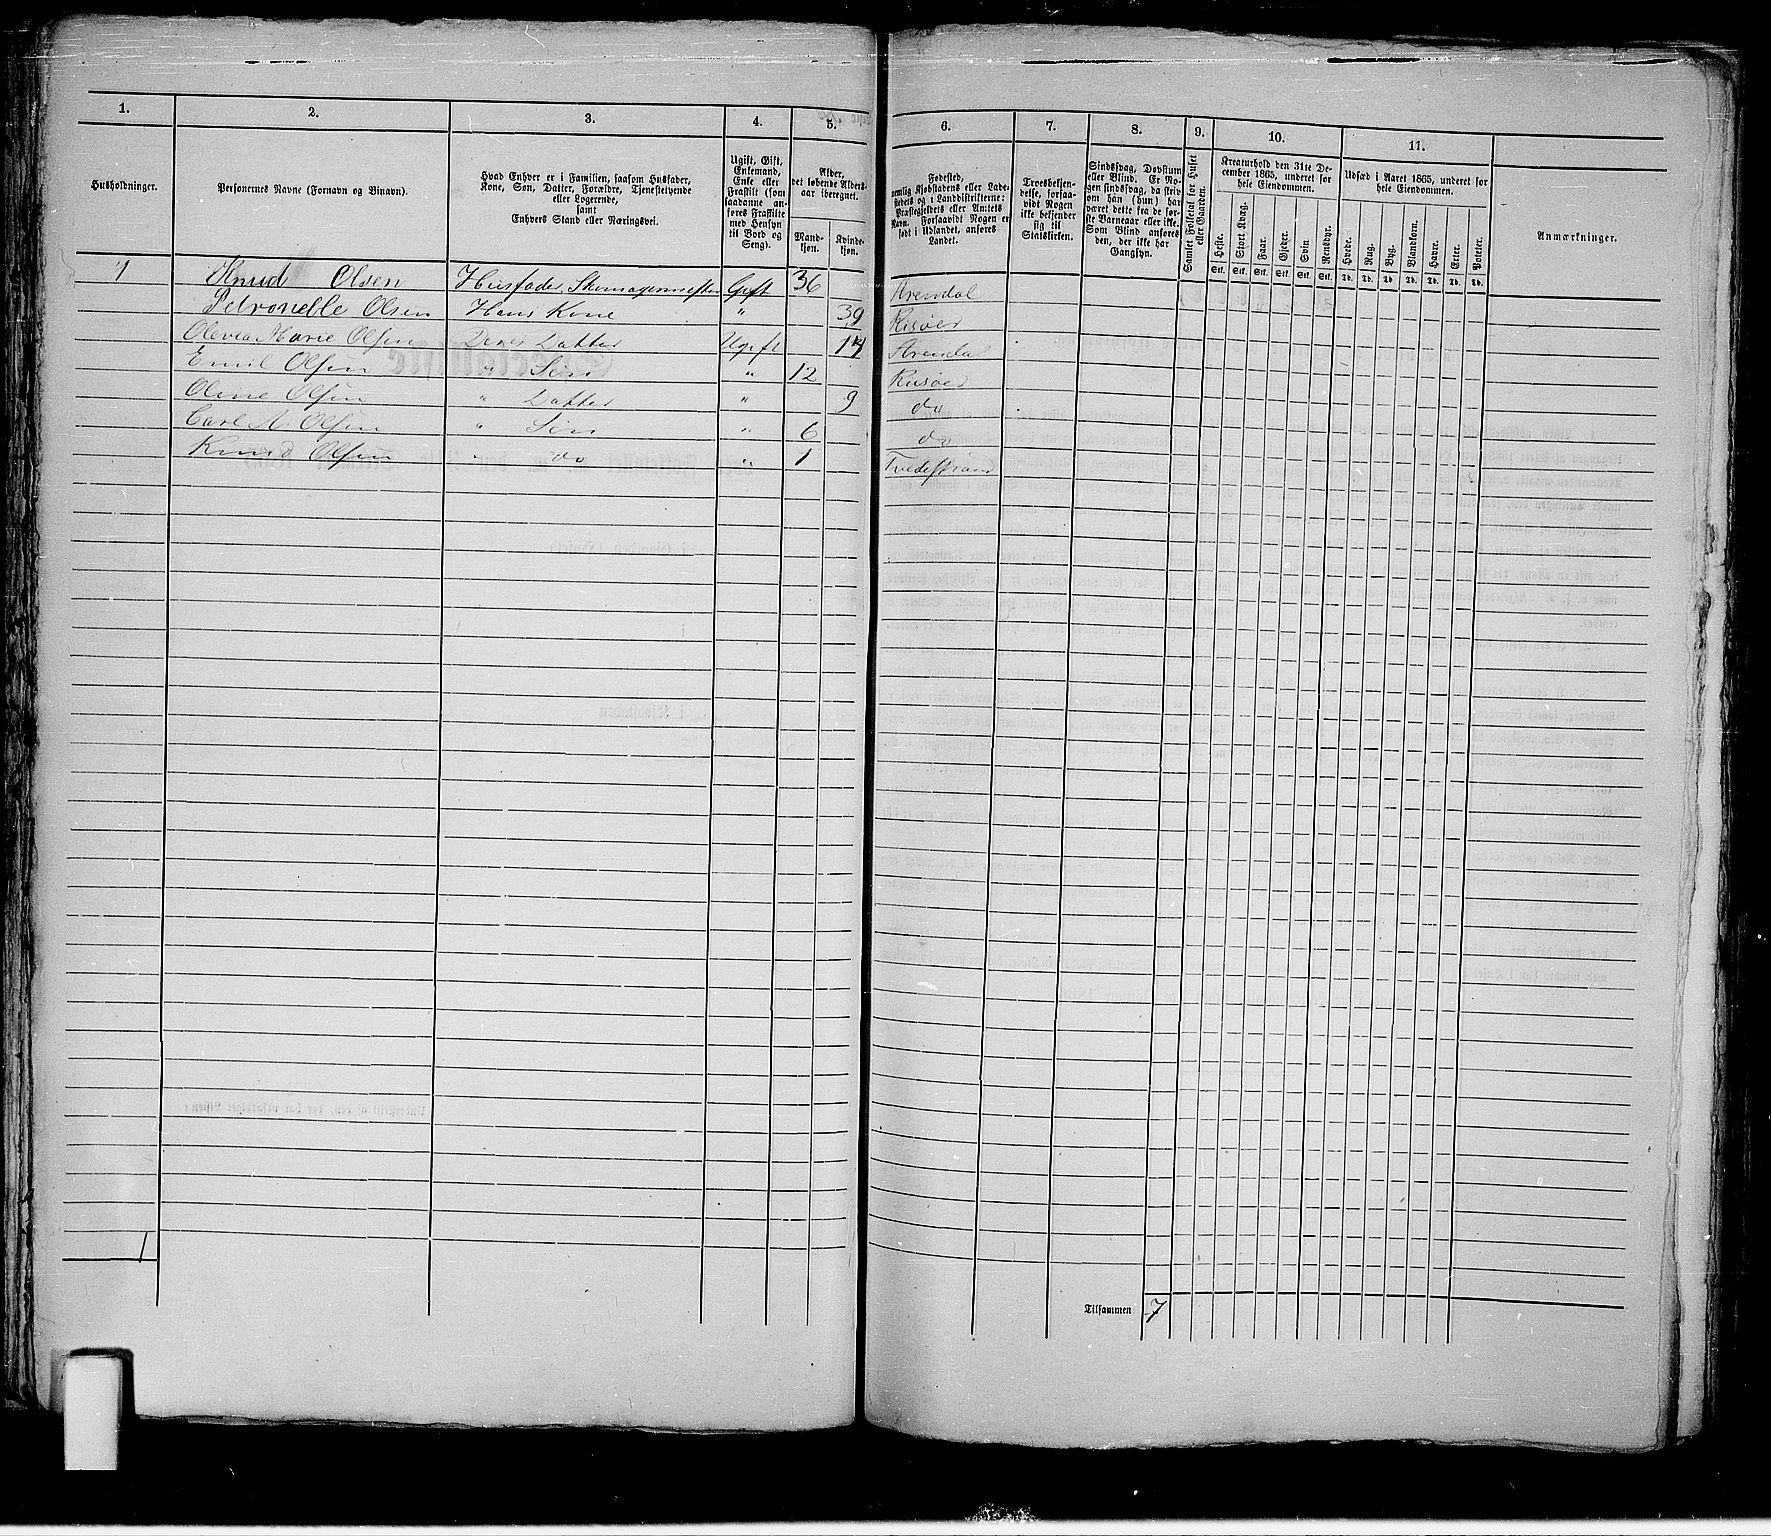 1. 2. 3. 4. 5. 6. 7. 8. 9. 10. 11.
Husholdninger.
Personernes Navne (Fornavn og Binavn).
Hvad Enhver er i Familien, saasom Husfader,
Kone, Søn, Datter, Forældre, Tjenestetyende
eller Logerende,
samt
Enhvers Stand eller Næringsvei.
Ugift, Gift,
Enkemand,
Enke eller
Fraskilt (som
saadanne an-
føres Fraskilte
med Hensyn
til Bord og
Seng).
Alder,
det løbende Alders-
aar iberegnet.
Mand-
kjøn.
Kvinde-
kjøn.
Fødested,
nemlig Kjøbstadens eller Lade-
stedets og i Landdistrikterne:
Præstegjeldets eller Amtets
Navn. Forsaavidt Nogen er
født i Udlandet, anføres
Landet.
Troesbekjen-
delse, forsaa-
vidt Nogen
ikke bekjender
sig til
Statskirken.
Sindssvag, Døvstum
eller Blind. Er No-
gen sindssvag, da skriv
om han (hun) har
været dette fra de før-
ste Barneaar eller ikke.
Som Blind anføres
den, der ikke har
Gangsyn.
Samlet Folketal for Huset
eller Gaarden.
Kreaturhold den 31te De-
cember 1865, underet for
hele Eiendommen.
Heste. Stort Kvæg. Faar. Gjeder. Svin. Rensdyr.
Stk. Stk. Stk. Stk. Stk. Stk.
Udsæd i Aaret 1865, underet for
hele Eiendommen.
Hvede. Rug. Byg. Blandkorn. Havre. Erter. Poteter.
Td. Td. Td. Td. Td. Td. Td.
Anmærkninger.
1 Knud Olsen Husfader, Skomagermester Gift 36 Arendal
Petronelle Olsen Hans Kone " 39 Risøer
Olevia Marie Olsen Deres Datter Ugift 14 Arendal
Emil Olsen " Søn " 12 Risøer
Oline Olsen " Datter " 9 do
Carl A Olsen " Søn " 6 do
Knud Olsen " do " 1 Tvedestrand
1
Tilsammen 7